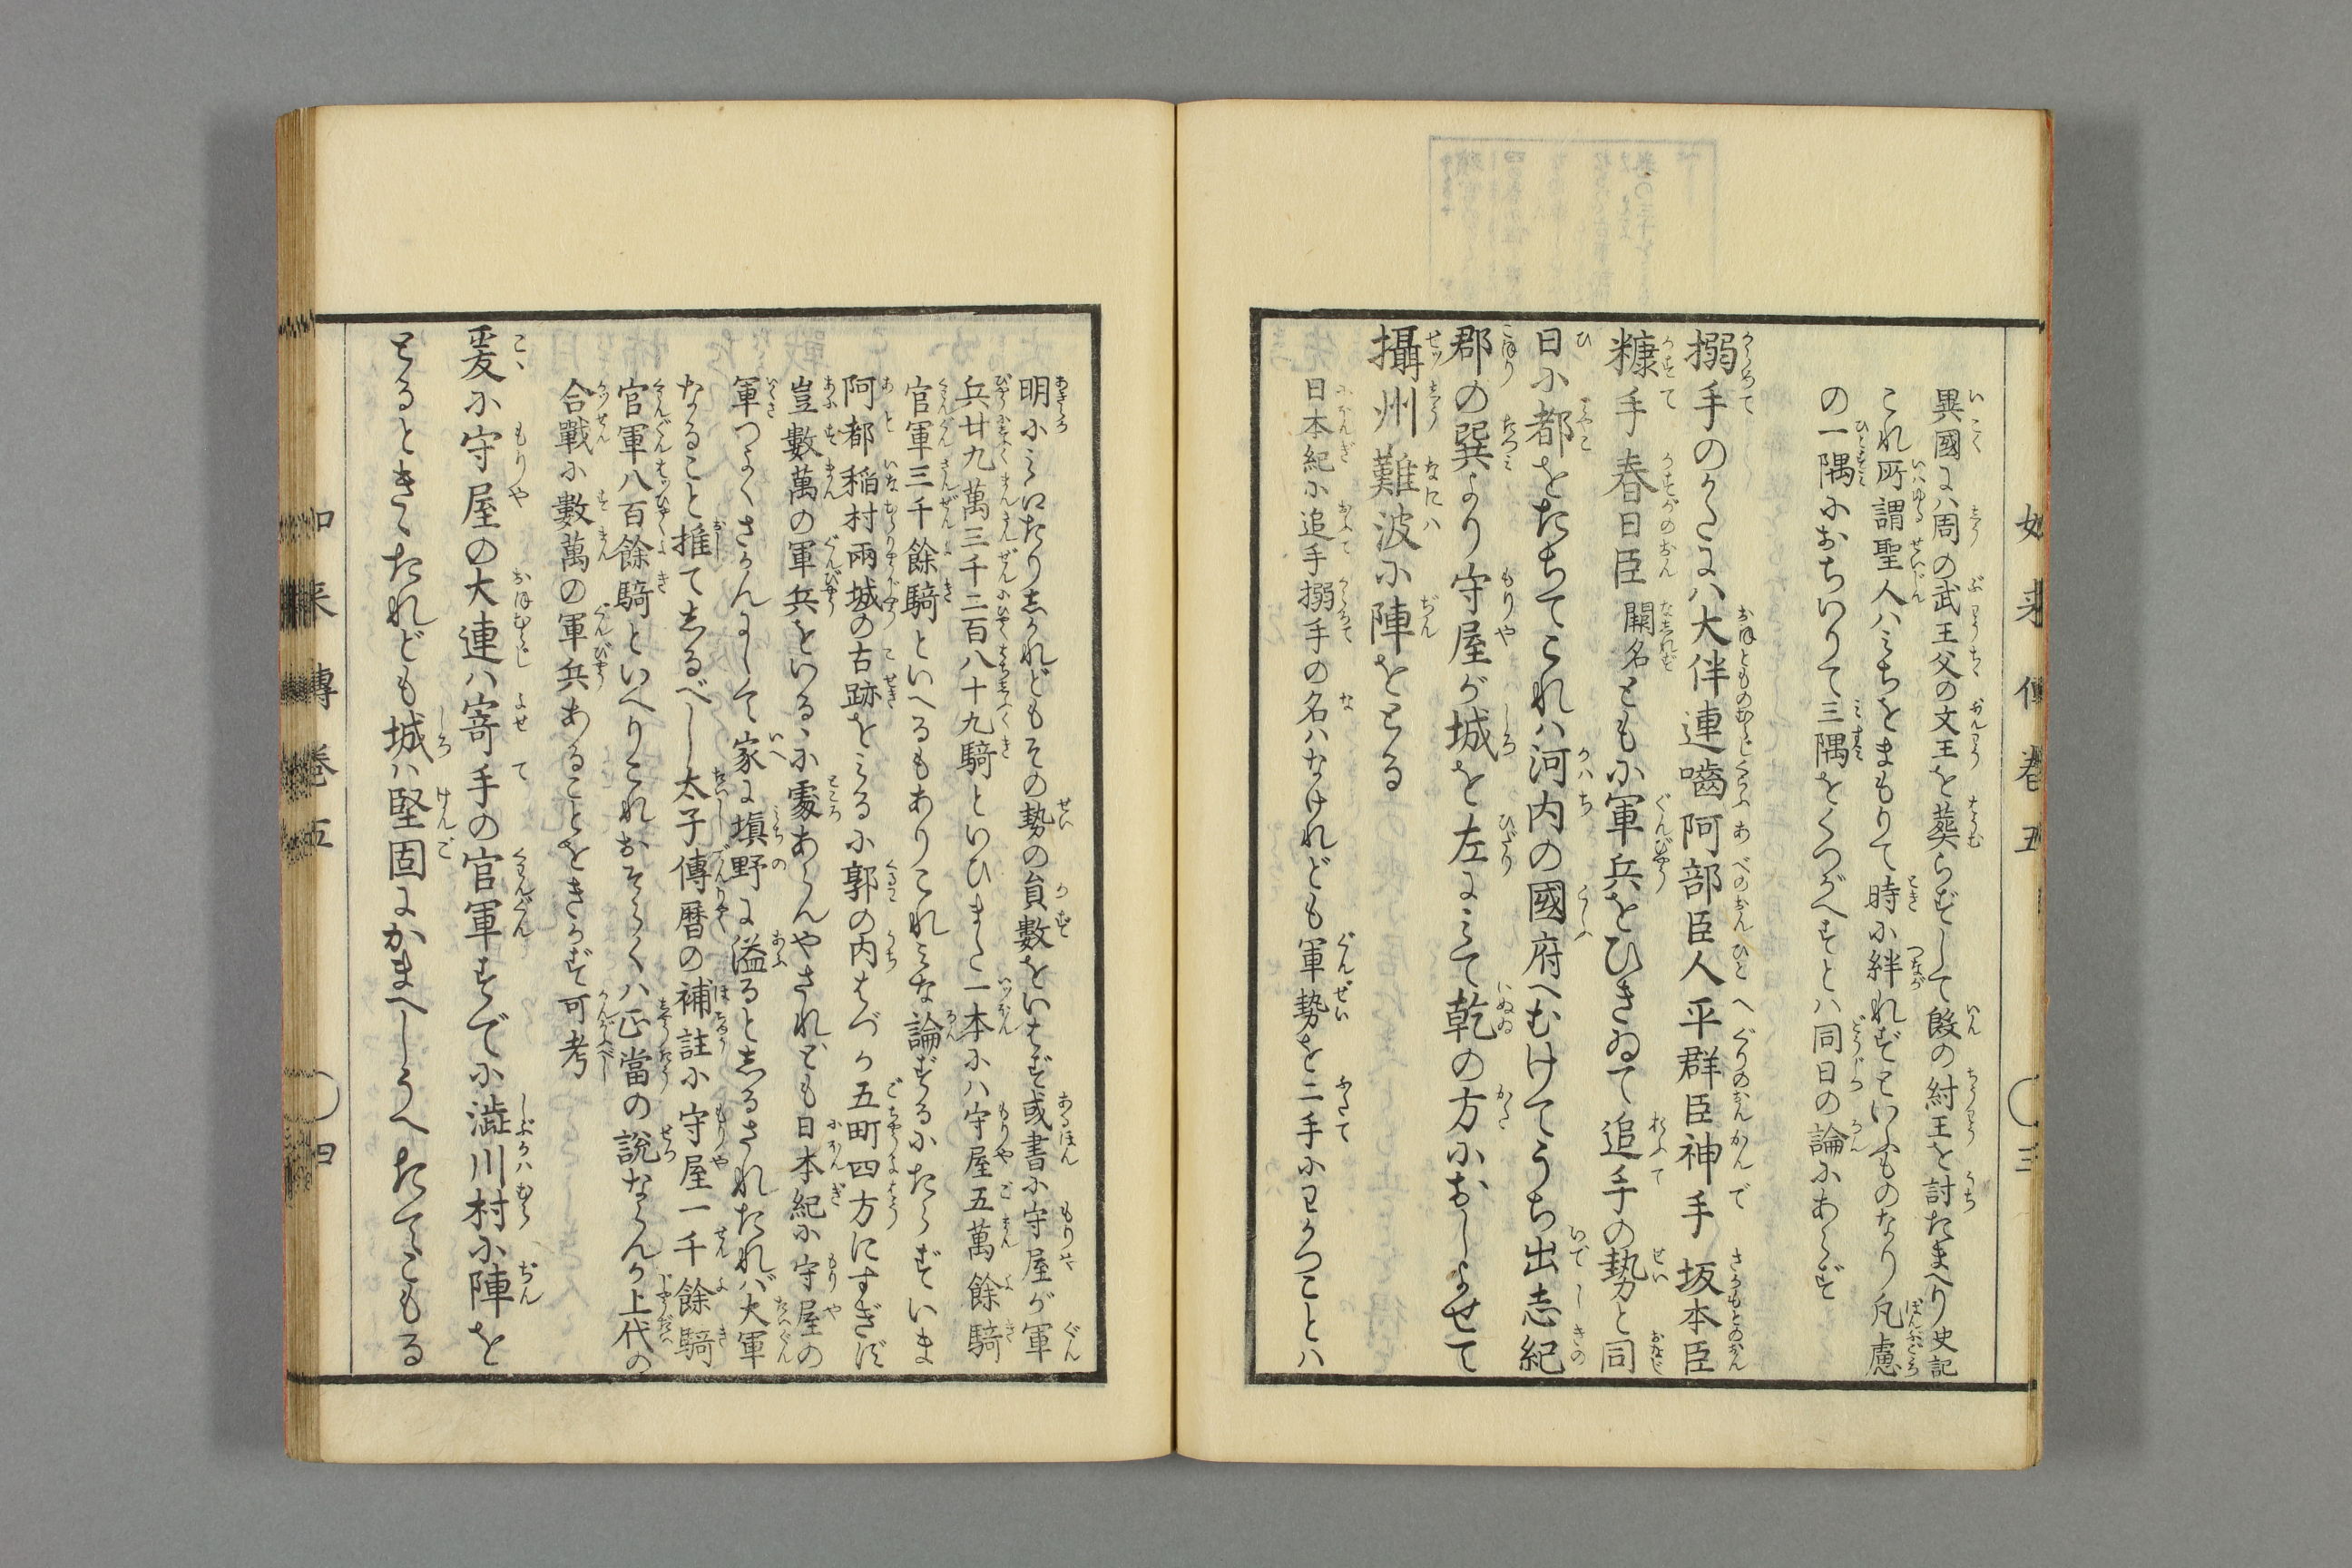 異國には周の武王父の文王を葬らずして殷の紂王を討たまへり史記
これ所謂聖人はみちをまもりて時に絆れずといふものなり凡慮
の一隅におちいりて三隅をくつがへすとは同日の論にあらず
搦手のかたには大伴連噛阿部臣人平群臣神手坂本臣
糠手春日臣闕名とも小軍兵をひきゐて追手の勢と同
日に都をたちてこれは河内の國府へむけてうち出志紀
郡の巽より守屋が城を左にみて乾の方におしよせて
攝州難波に陣をとる
日本紀に追手搦手の名はなけれども軍勢を二手にわかつことは
明にみいたりしかれどもその勢の員數をいはず或書に守屋が軍
兵廿九萬三千二百八十九騎といひまた一本には守屋五萬餘騎
官軍三千餘騎といへるもありこれみな論ずるにたらずいま
阿都稲村兩城の古跡をみるに郭の内はづか五町四方にすぎず
豈數萬の軍兵をいるゝに處あらんやされども日本紀に守屋の
軍つよくさかんにして家に塡野に溢るとしるされたれば大軍
なること推てしるべし太子傳暦の補註に守屋一千餘騎
官軍八百餘騎といへりこれおそらくは正當の説ならんか上代の
合戰に數萬の軍兵あることをきかず可考
爰に守屋の大連は寄手の官軍すでに澁川村に陣を
とるときゝたれども城は堅固にかまへしうへたてこもる
如来傳巻五
三
如来傳巻五
四